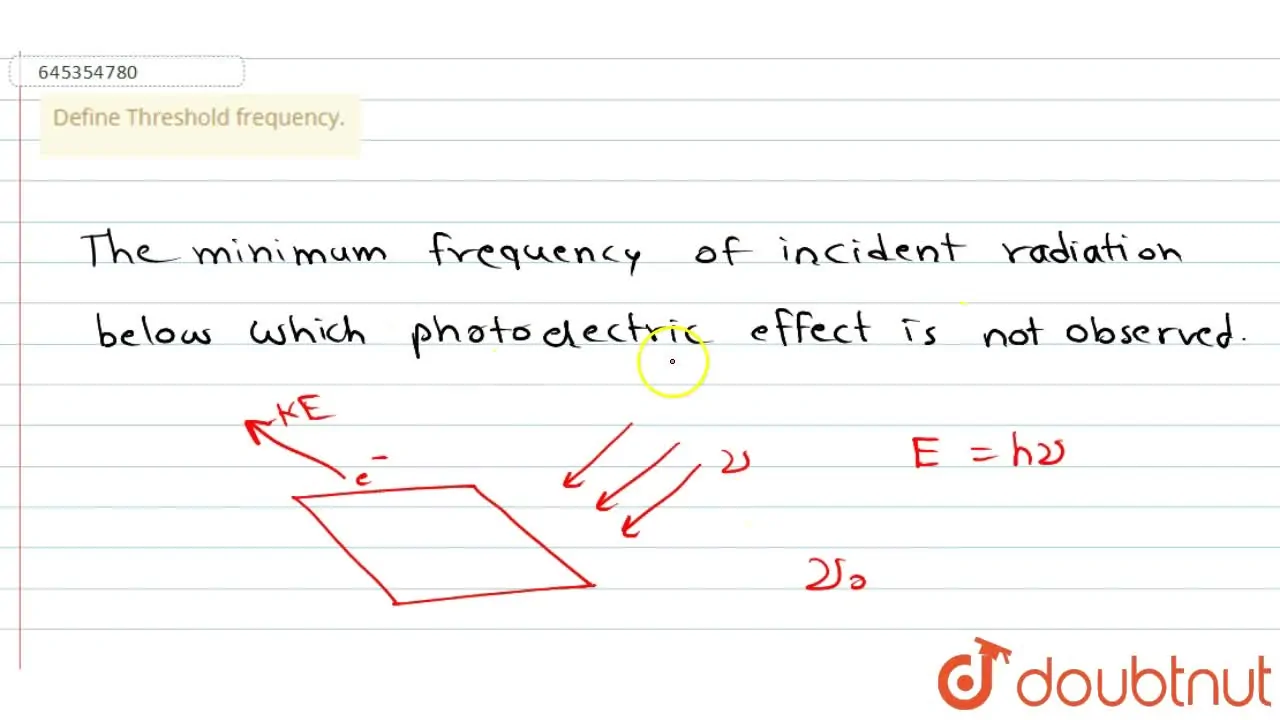 645354780
Define Threshold frequency.
The minimum frequency of incident radiation
below which photoelectric effect is not observed.
KE
e⁻
ν
E = hν
ν₀
doubtnut